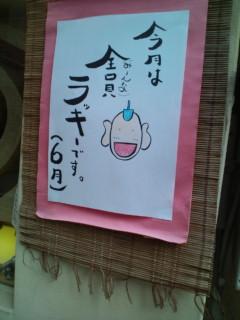 今月は
全員(みーんな)
ラッキーです。
(6月)